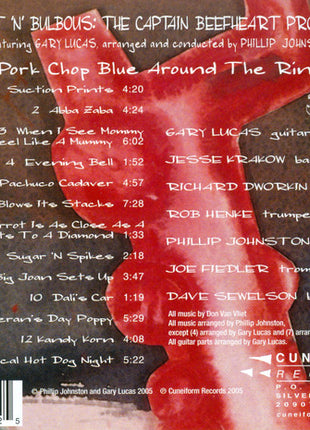 T 'N' BULBOUS: THE CAPTAIN BEEFHEART PRO
aturing GARY LUCAS, arranged and conducted by PHILLIP JOHNS
Pork Chop Blue Around The Rin
SUCTION PRINTS 4:20
2 ABBA ZABA 3:04
3 WHEN I SEE MOMMY
EEL LIKE A MUMMY 6:02
4 EVENING BELL 1:51
PACHUCO CADAVER 4:51
BLOWS ITS STACKS 7:28
RROT IS AS CLOSE AS A
TS TO A DIAMOND 1:33
SUGAR 'N SPIKES 2:38
BIG JOAN SETS UP 3:53
10 DALI'S CAR 1:31
ERAN'S DAY POPPY 2:31
12 KANDY KORN 5:08
ICAL HOT DOG NIGHT 2:23
GARY LUCAS guitar
JESSE KRAKOW ba
RICHARD DWORKIN
ROB HENKE trumpe
PHILLIP JOHNSTON
JOE FIEDLER trom
DAVE SEWELSON
All music by Don Van Vliet
All music arranged by Phillip Johnston,
except (4) arranged by Gary Lucas and (7) arran
All guitar parts arranged by Gary Lucas.
CUNE
REC
P.O.
SILVER
2090
cuneiform
℗ Phillip Johnston and Gary Lucas 2005 © Cuneiform Records 2005
2 5